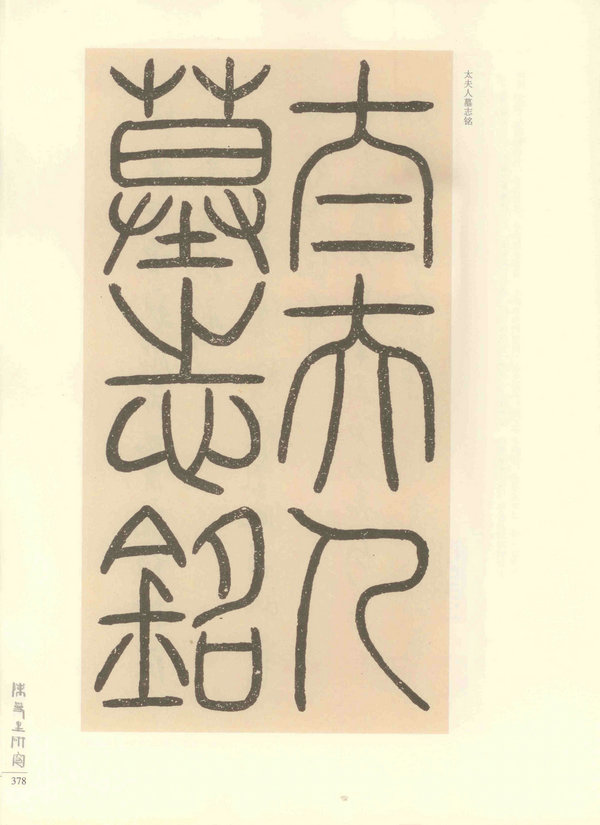 太夫人墓志铭
太夫人
墓志銘
378